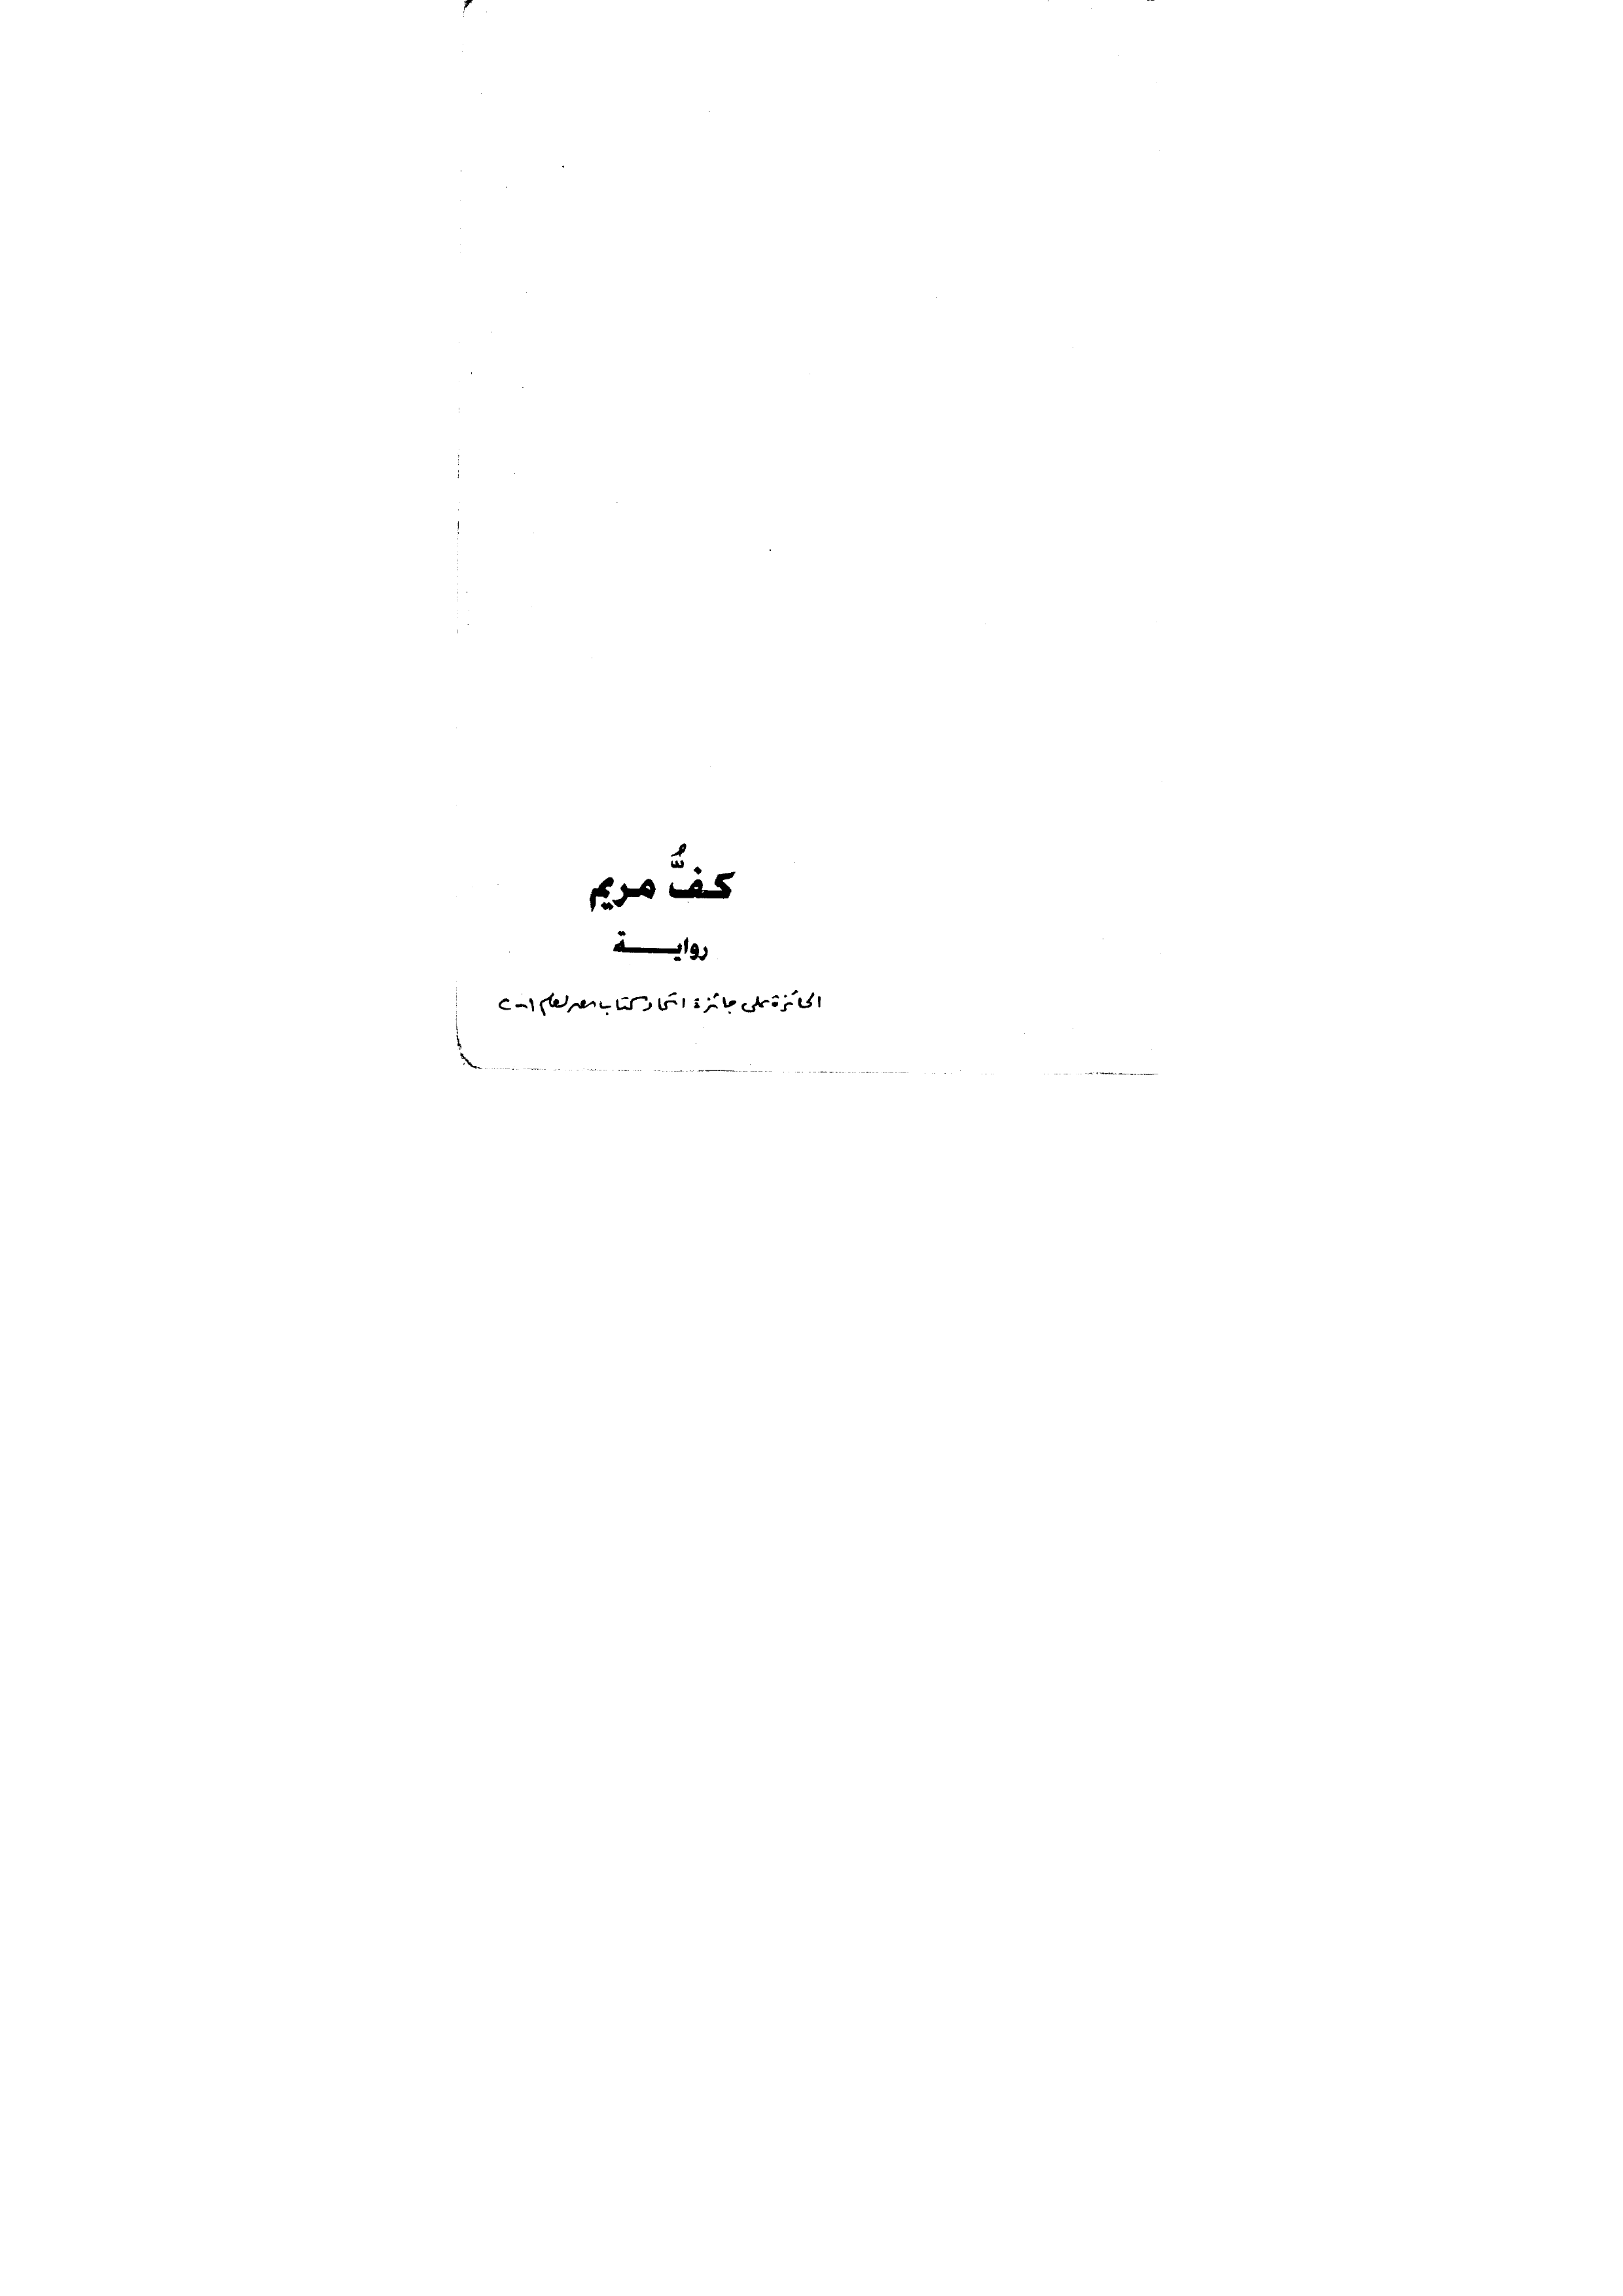 كفُّ مريم
روايـــــة
الحائزة على جائزة اتحاد كتاب مصر لعام ٢٠٠١